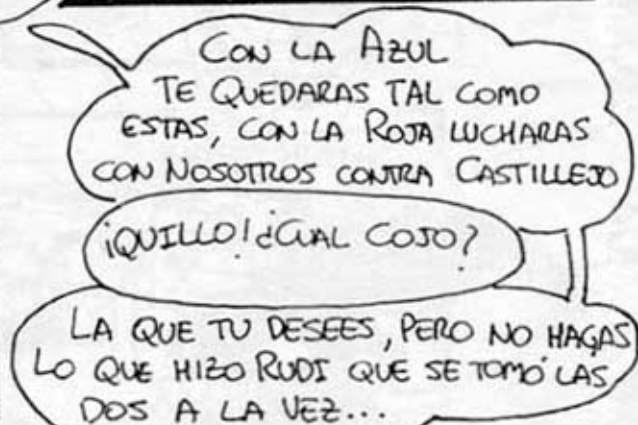 CON LA AZUL
TE QUEDARAS TAL COMO
ESTAS, CON LA ROJA LUCHARAS
CON NOSOTROS CONTRA CASTILLEJO
¡QUILLO! ¿CUAL COJO?
LA QUE TU DESEES, PERO NO HAGAS
LO QUE HIZO RUDI QUE SE TOMÓ LAS
DOS A LA VEZ...